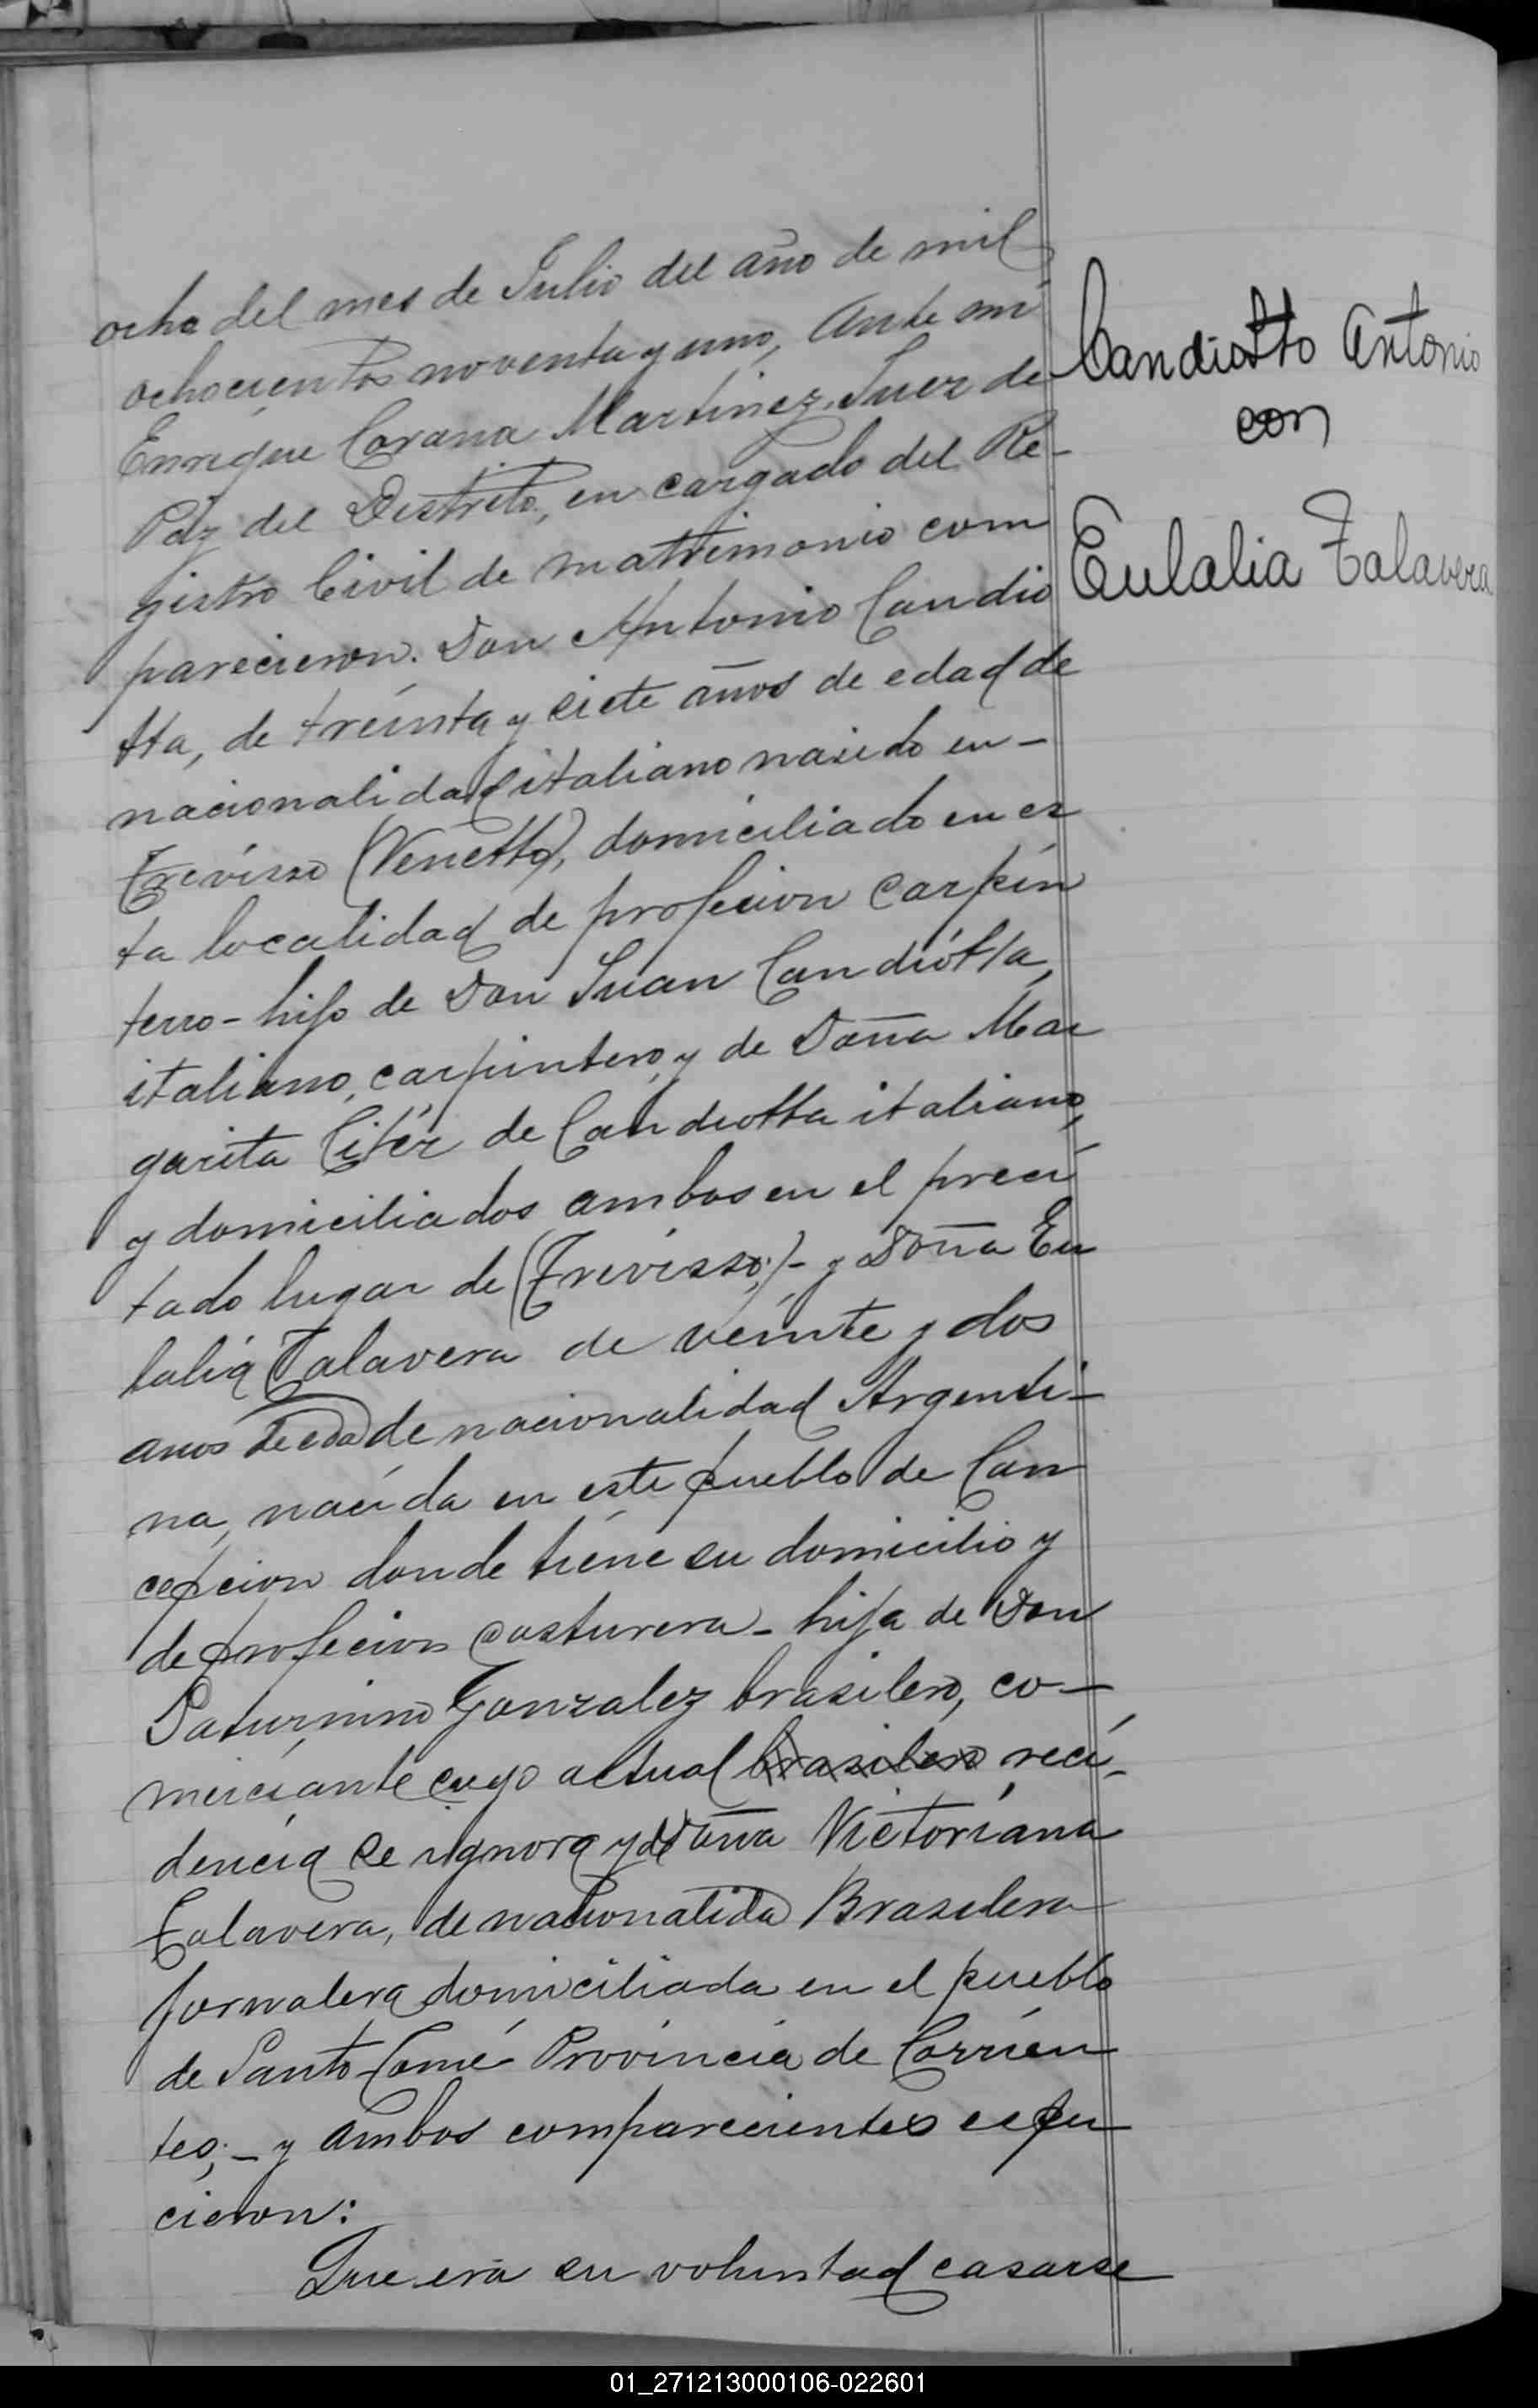 ocho del mes de Julio del año de mil
ochocientos noventa y uno, Ante mi
Enrique Corana Martinez Juez de
Páz del Distrito, en cargado del Re-
gistro Civil de matrimonio com
parecieron. Don Antonio Candio
tta, de treinta y siete años de edad de
nacionalidad italiano nacido en -
Trevisso (Venetto), domiciliado en es
ta localidad de profecion carpin
terro - hijo de Don Juan Candiótta,
italiano, carpintero, y de Doña Mar
garita Citér de Candiotta italiano,
y domiciliados ambos en el preci
tado lugar de (Trevisso;) - y Doña Eu
lalia Talavera de veinte y dos
anos de eda de nacionalidad Argenti-
na, nacida en este pueblo de Con
cepcion donde tiene su domicilio y
de profecion costurera - hija de Don
Saturnino Gonzalez brasilero, co-
merciante cuyo actual brasilero reci-
dencia se ignora y de Doña Victoriana
Talavera, de nacionalida Brasilera
jornalera domiciliada en el pueblo
de Santo Tomé Provincia de Corrien
tes; - y ambos comparecientes espu
cieron:
Que era su voluntad casarse
Candiotto Antonio
con
Eulalia Talavera
01_271213000106-022601